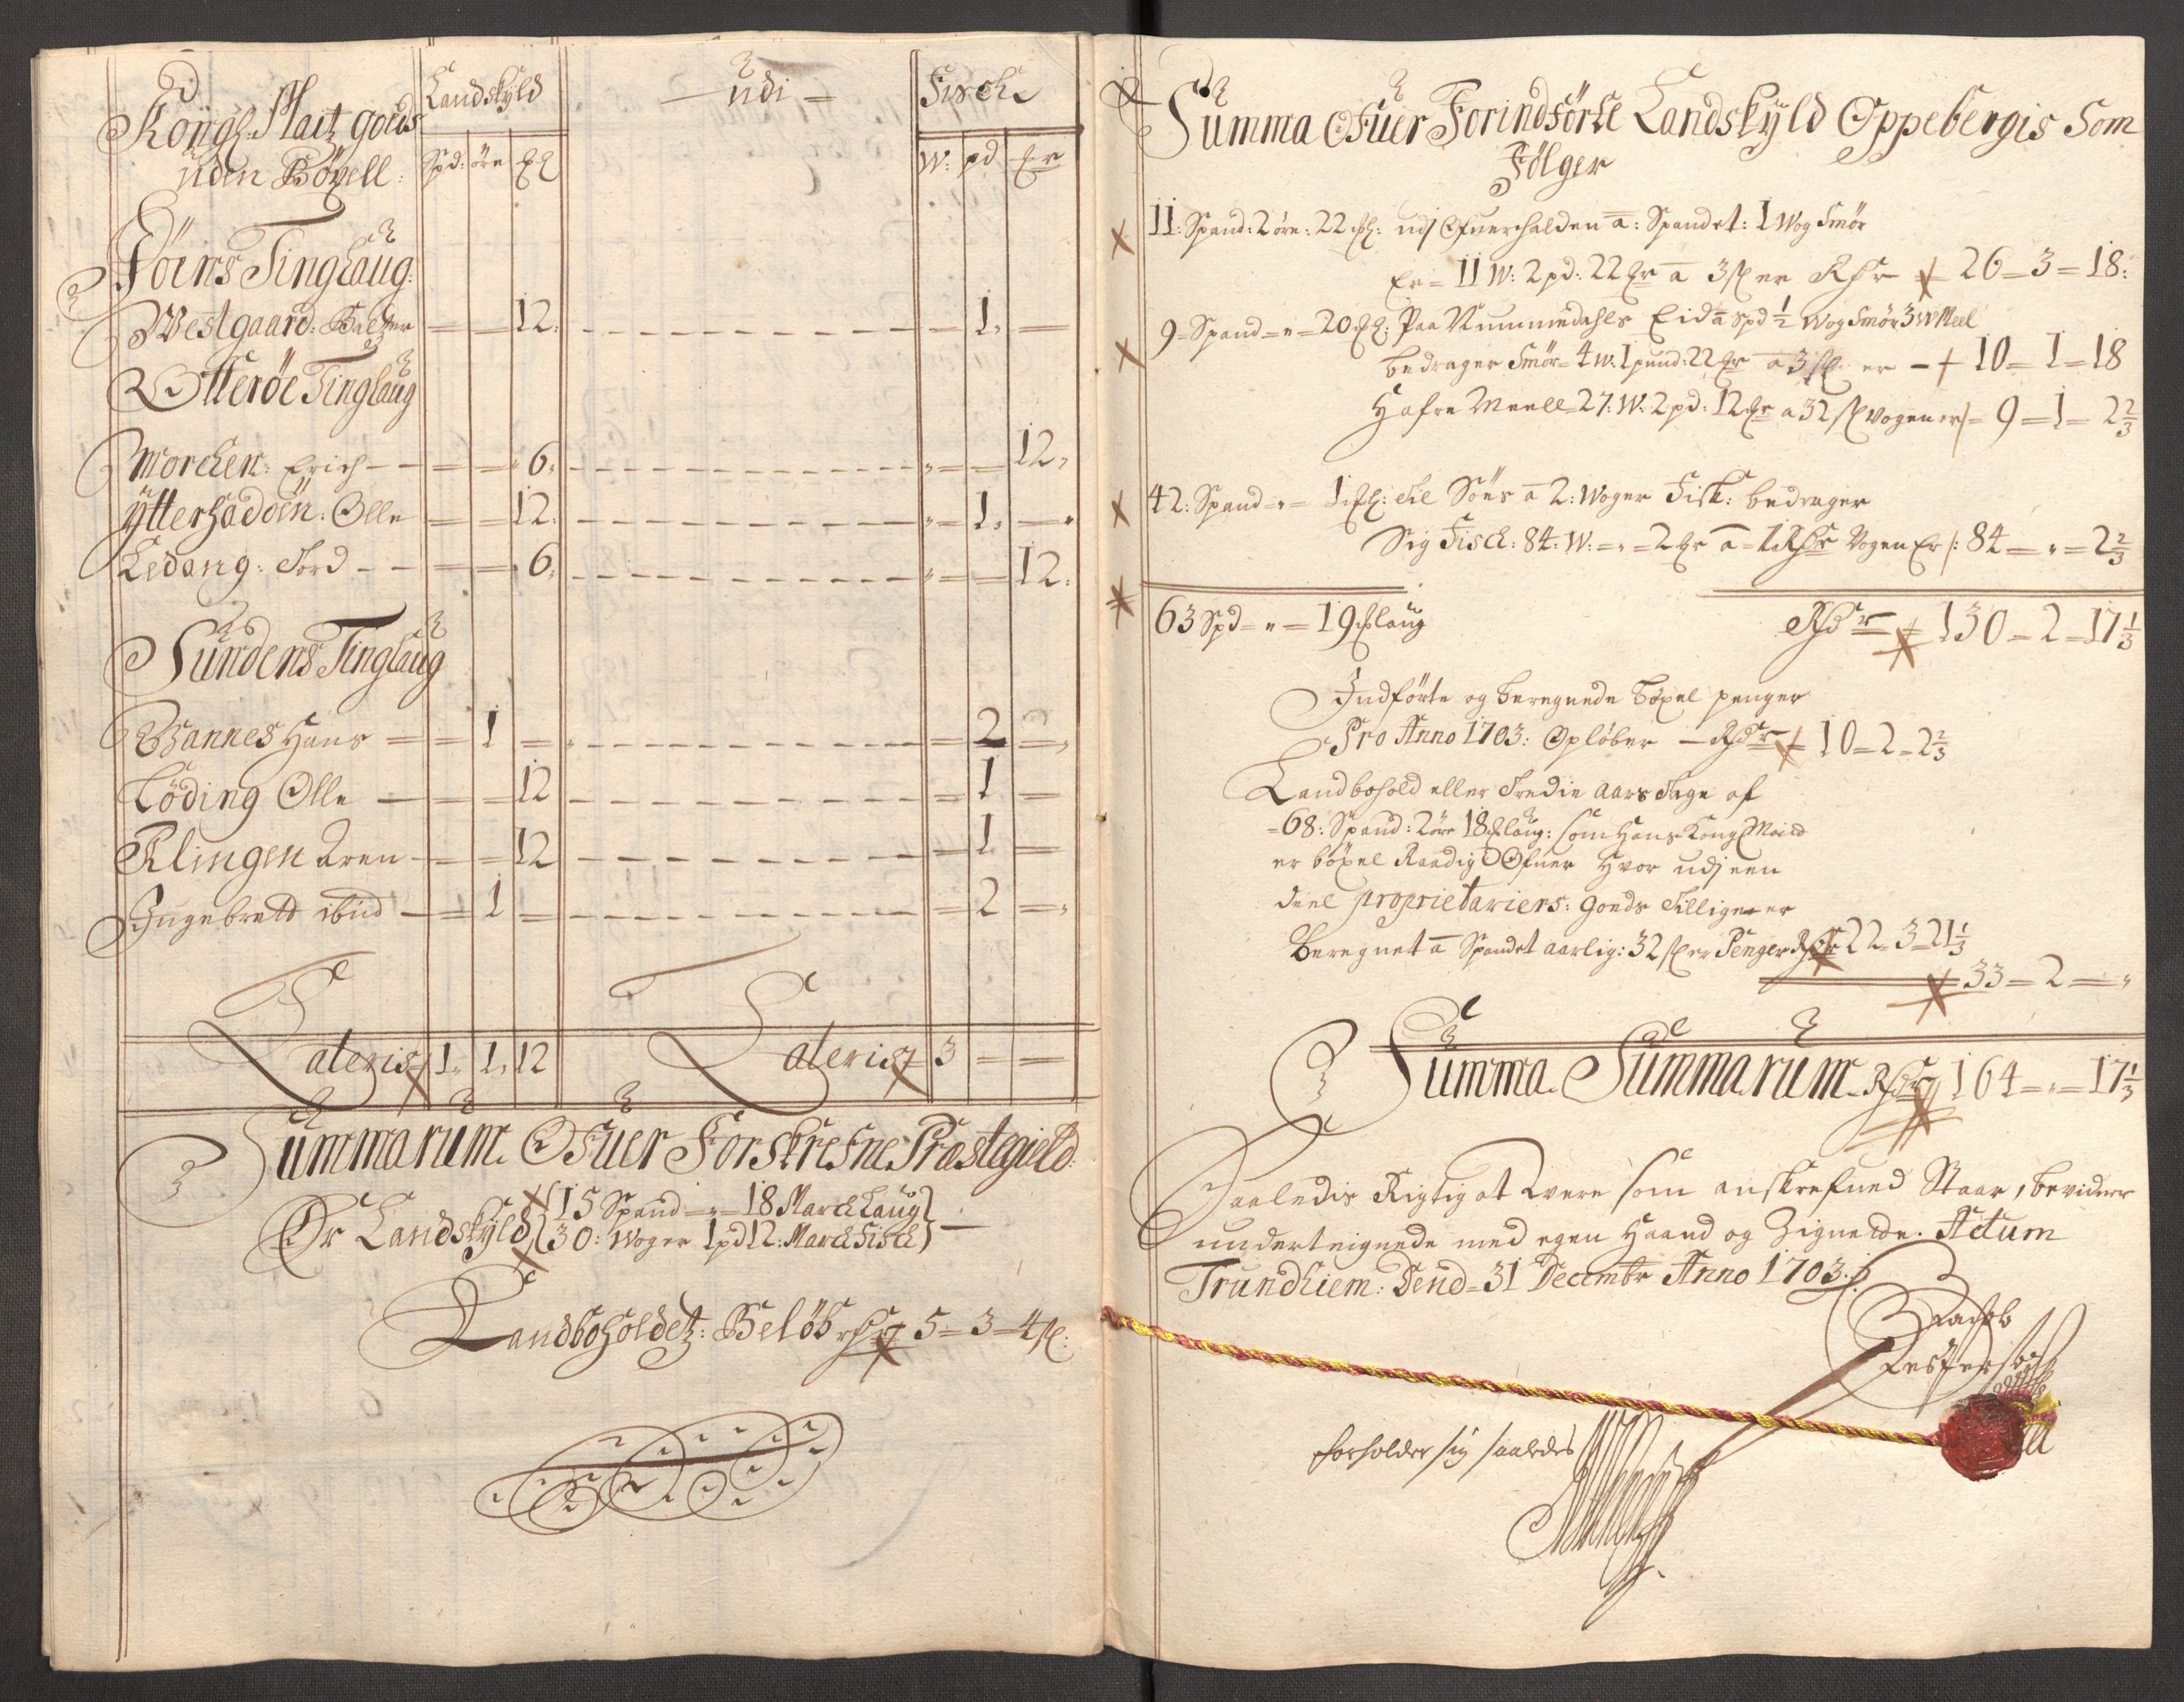 Kongl: Maitz goeds
uden Böxell:
Landskyld
udi
Fisch
Spd: öre
W: pd
Föins Tinglaug:
Westgaard: Baltzer 12: 1
Otteröe Tinglaug
Morchen: Erich 6 12
Ytterhadöen: Olle 12 1
Ledang: Tord 6 12
Sundens Tinglaug
Bannes Hans 1 2
Löding Olle 12 1
Klingen Aren 12 1
Ingebrett ibid 1 2
Lateris 1 1 12 Lateris 3
Summarum Ofuer Forskrefne Præstegield:
Er Landskyld 15 Spand " 18 March Laug
30: Woger 1 pd 12: March Fisch
Landboholdetz: Belöb 5 = 3 = 4 s:
Summa Ofuer Forindförte Landskyld Oppebergis Som
Fölger
11: Spand: 2 öre: 22: udj Ofuerhalden a: Spandet: 1 Wog Smör
Er = 11 W: 2 pd: 22 a 3 er 26 = 3 = 18:
9 = Spand = " = 20 Paa Nummedahls Eid a spd 1/2 Wog Smör 3 W Meel
bedrager Smör = 4 W: 1 pund: 22 a 3 er 10 = 1 = 18
Hafre Meell = 27: W: 2 pd: 12 a 32 s Wogen er 9 = 1 = 2 2/3
42: Spand = " = 1 til Söes a 2: Woger Fisk: bedrager
Sig Fisch: 84: W: = " = 2 a = 1 Rdr Vogen Er 84 = " = 2 2/3
63 Spd = " = 19 laug Rdr 130 = 2 = 17 1/3
Indförte og beregnede böxel penger
Pro Anno 1703: Opløber Rdr 10 = 2 = 2 2/3
Landbohold eller Tredie aars tage af
68: Spand: 2 öre 18 laug: som Hans Kongl Maitt
er böxel Raadig Ofuer Hvor udj een
deel proprietariers: goeds
Beregnet a Spandet aarlig: 32 s er Penger Rdr 22 = 3 = 21 1/3
33 = 2 = "
Summa Summarum Rdr 164 = " = 17 1/3
Saaledis Rigtig at Were som anskrefued Staar, bevidner
underteignede med egen Haand og Zignette. Actum
Trundhiem: Dend = 31 Decembr Anno 1703
forholder sig saaledes